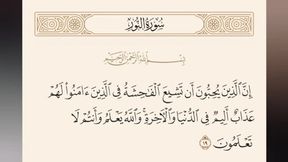 سُورَةُ النُّورِ
بِسْمِ اللَّهِ الرَّحْمَٰنِ الرَّحِيمِ
إِنَّ ٱلَّذِينَ يُحِبُّونَ أَن تَشِيعَ ٱلْفَٰحِشَةُ فِي ٱلَّذِينَ ءَامَنُوا۟ لَهُمْ
عَذَابٌ أَلِيمٌ فِي ٱلدُّنْيَا وَٱلْءَاخِرَةِ ۚ وَٱللَّهُ يَعْلَمُ وَأَنتُمْ لَا
تَعْلَمُونَ ١٩